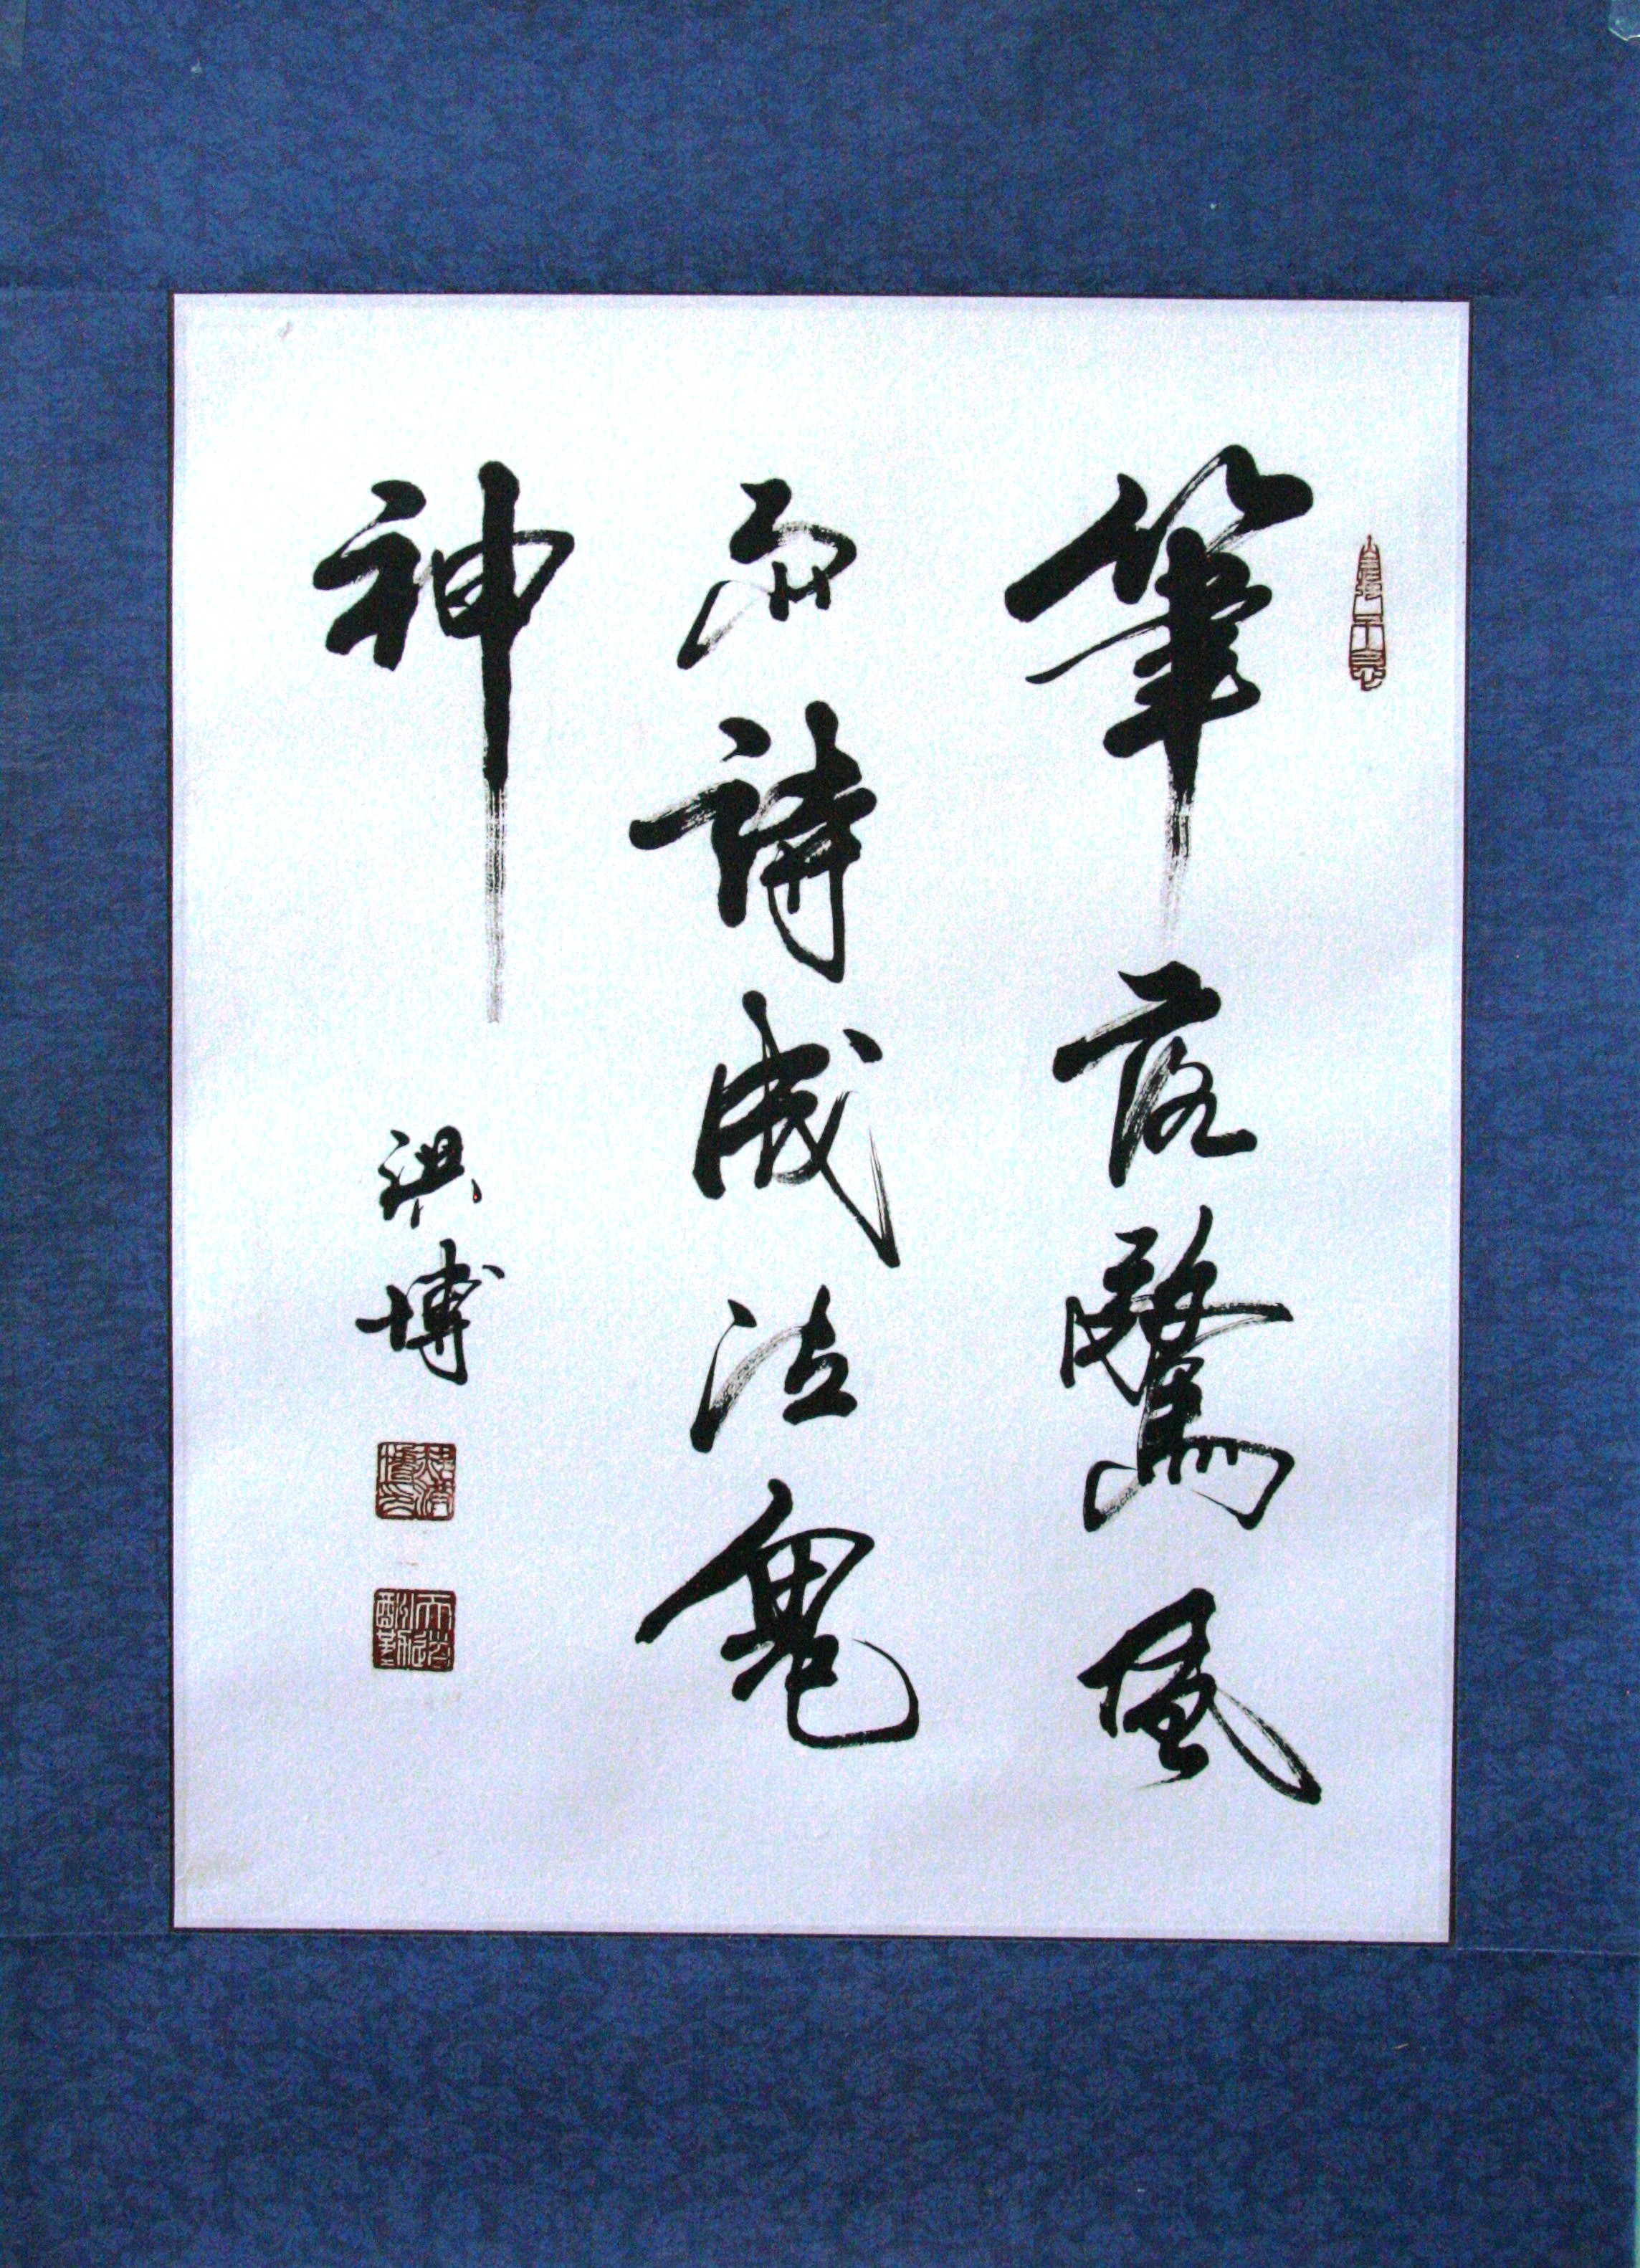 筆落驚風
雨詩成泣鬼
神
洪博